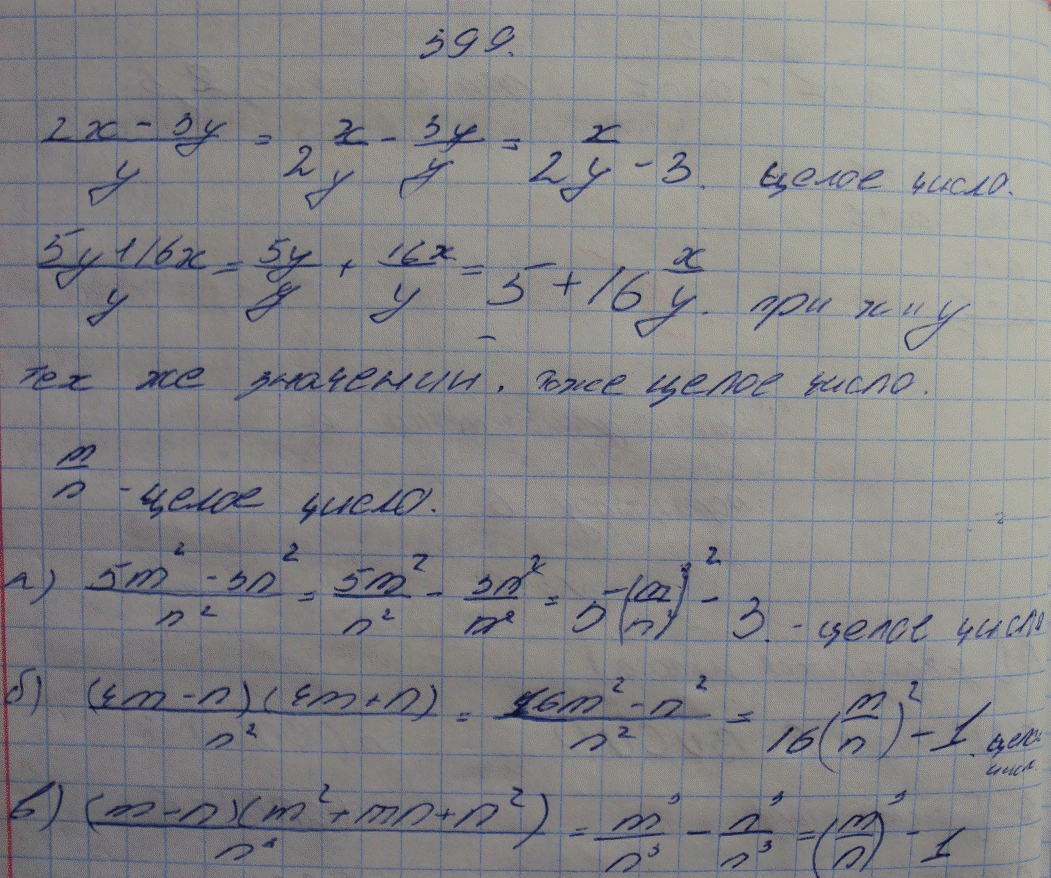 599.
(2x - 3y)/y = 2 x/y - 3y/y = 2 x/y - 3. целое число.
(5y+16x)/y = 5y/y + 16x/y = 5 + 16 x/y. при x и y
тех же значении. тоже целое число.
m/n - целое число.
а) (5m² - 3n²)/n² = 5m²/n² - 3n²/n² = 5(m/n)² - 3. - целое число
б) (4m - n)(4m + n)/n² = (16m² - n²)/n² = 16(m/n)² - 1. целое число
в) (m - n)(m² + mn + n²)/n³ = m³/n³ - n³/n³ = (m/n)³ - 1